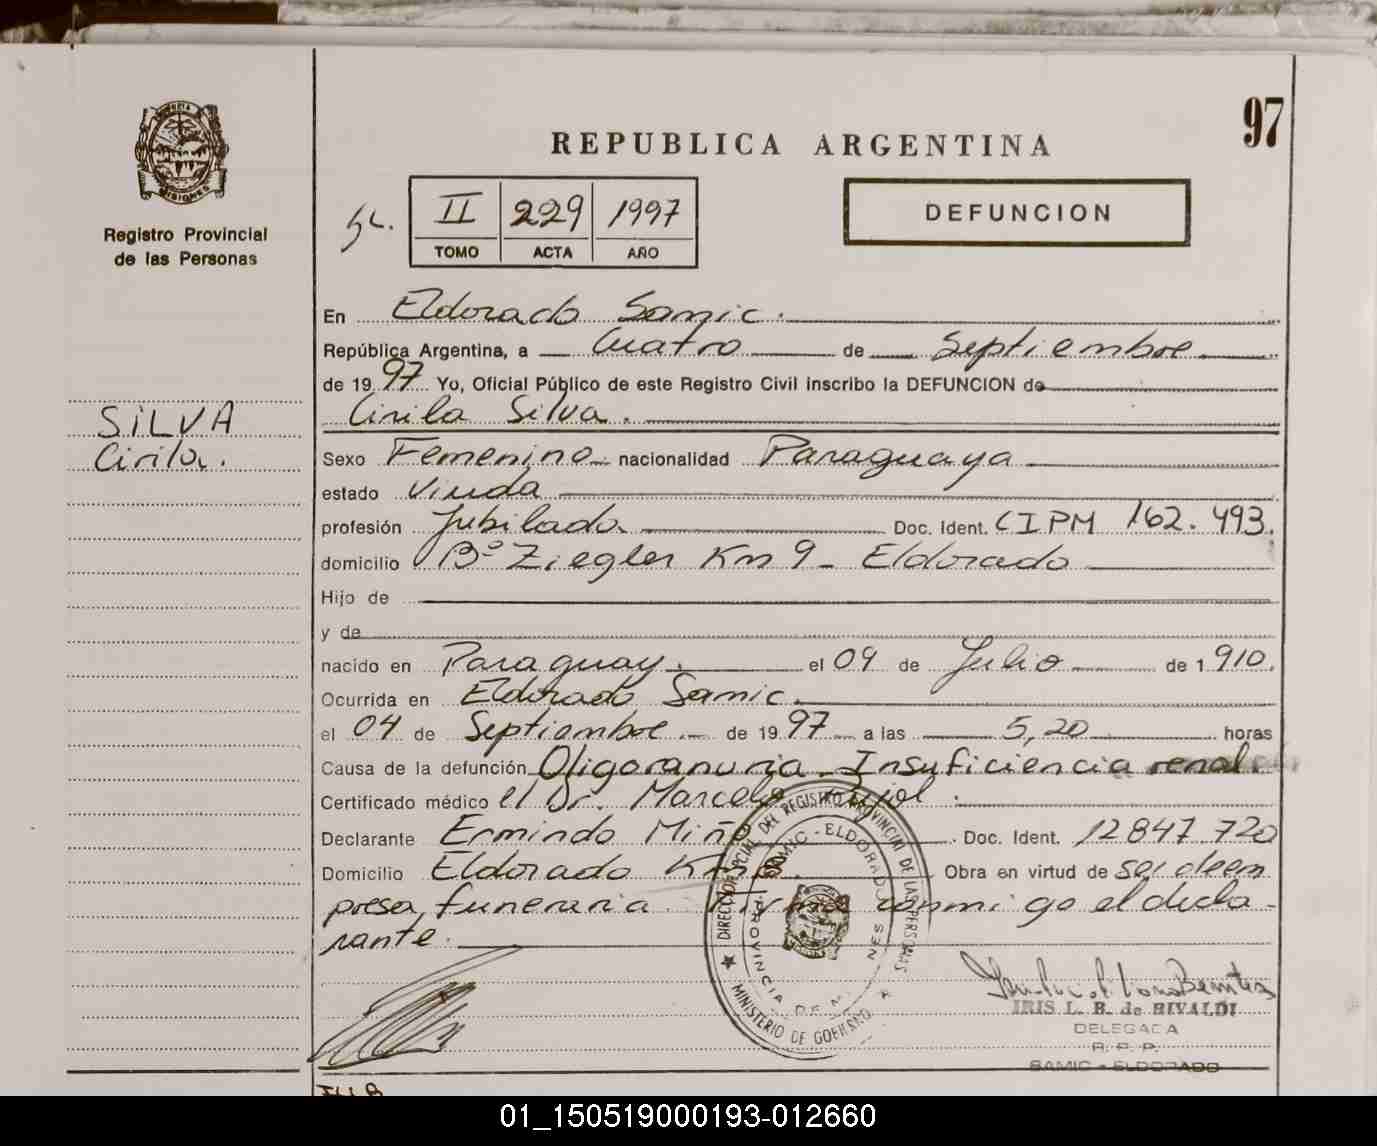 97
REPUBLICA ARGENTINA
II 229 1997
TOMO ACTA AÑO
DEFUNCION
MISIONES
Registro Provincial
de las Personas
En Eldorado Samic.
República Argentina, a Cuatro de Septiembre
de 1997 Yo, Oficial Público de este Registro Civil inscribo la DEFUNCION de
Cirila Silva.
SILVA
Cirila.
Sexo Femenino nacionalidad Paraguaya
estado Viuda
profesión Jubilada Doc. Ident. CIPM 162.493.
domicilio Bº Ziegler Km 9 - Eldorado
Hijo de
y de
nacido en Paraguay. el 09 de Julio de 1910.
Ocurrida en Eldorado Samic.
el 04 de Septiembre de 1997 a las 5,20 horas
Causa de la defunción Oligoranuria. Insuficiencia renal.
Certificado médico el Dr. Marcelo Pujol.
Declarante Ermindo Miño Doc. Ident. 12847.720
Domicilio Eldorado Obra en virtud de ser de em
presa funeraria. Firma conmigo el decla-
rante.
DIRECCION GRAL DEL REGISTRO PROVINCIAL DE LAS PERSONAS
SAMIC - ELDORADO
PROVINCIA DE MISIONES
MINISTERIO DE GOBIERNO
IRIS L. B. de RIVALDI
DELEGADA
R. P. P.
SAMIC - ELDORADO
01_150519000193-012660